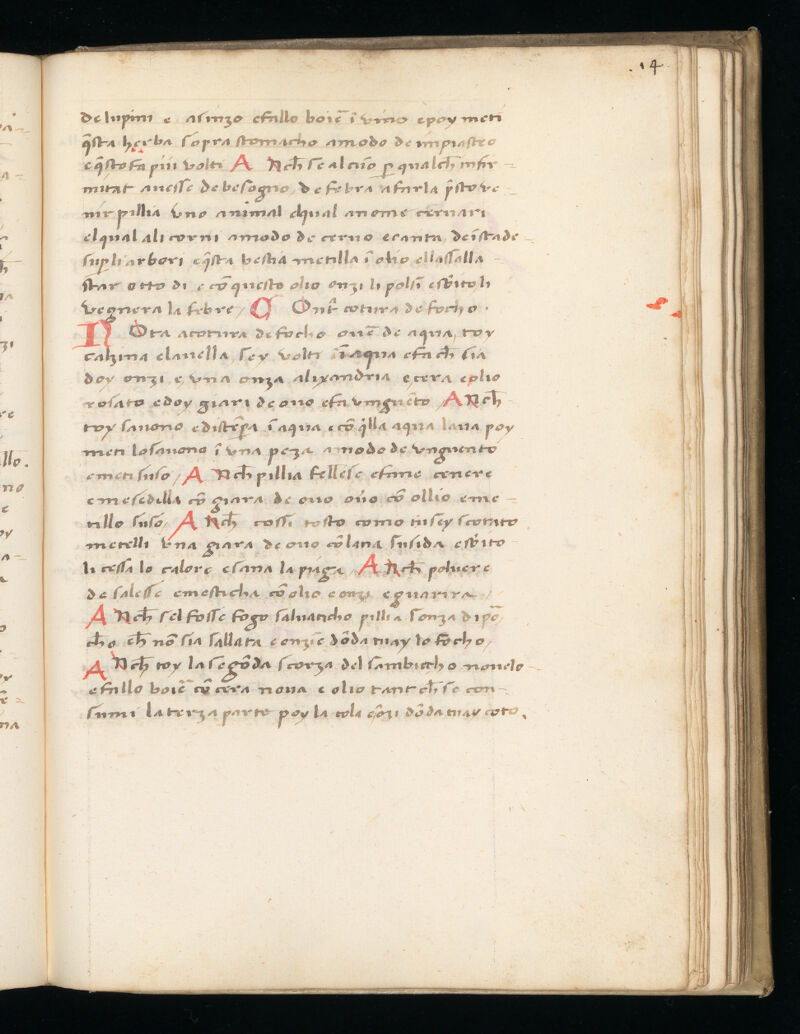 .14
de lupini e asinzo e fallo boiē ī vino e poy meti
q̄sta herba sopra stomacho amodo de inpiastro
e q̄sto fa piu volti Anch̄ se alcūo ꝑ qualch̄ infir-
mitat avesse de besogno de febra a farla p̄sto ve-
nir pillia uno animal elqual a nome cervari
elqual a li corni amodo de cervo e canta de istade
su ꝑ li arbori e q̄sta bestia metilla ī olio e llassalla
star otto di e cō questo olio onzi li polsi e sbito li
vegnera la febre / Contr̄ cotura de focho .
Nota a cotura de focho ovē de aqua, toy
calzina e lavella sey volti ī aqua e fa ch̄ sia
doy onzi e una onza alixandria e cera e olio
rosato e doy giari de ovo e fa vnguēto Anch̄
toy savono e distēpra ī aqua e cō q̄lla aqua lava poy
meti lo savono ī una peza amodo de vnguento
e meti suso / Anch̄ pillia fellese e fame cenere
e mesedilla cō giara de ovo ovō cō ollio e me-
tillo suso / Anch̄ cossi tosto como tu sey scotato
metelli vna giara de ovo cō lana susida e sbito
li cessa lo calore e sana la piaga / Anch̄ polvere
de salesse e mesticha cō olio e onzi e guarira /
Anch̄ sel fosse fogo salvaticho pillia sonza di por̄
cho ch̄ nō sia sallata e onzie dōda tu ay lo focho /
Anch̄ toy la segōda scorza del sambuccho novelo-
e fallo boiē cū cera nova e olio tant ch̄ se con-
sumi la terza parte poy la cola e onzi dōda tu ay coto.